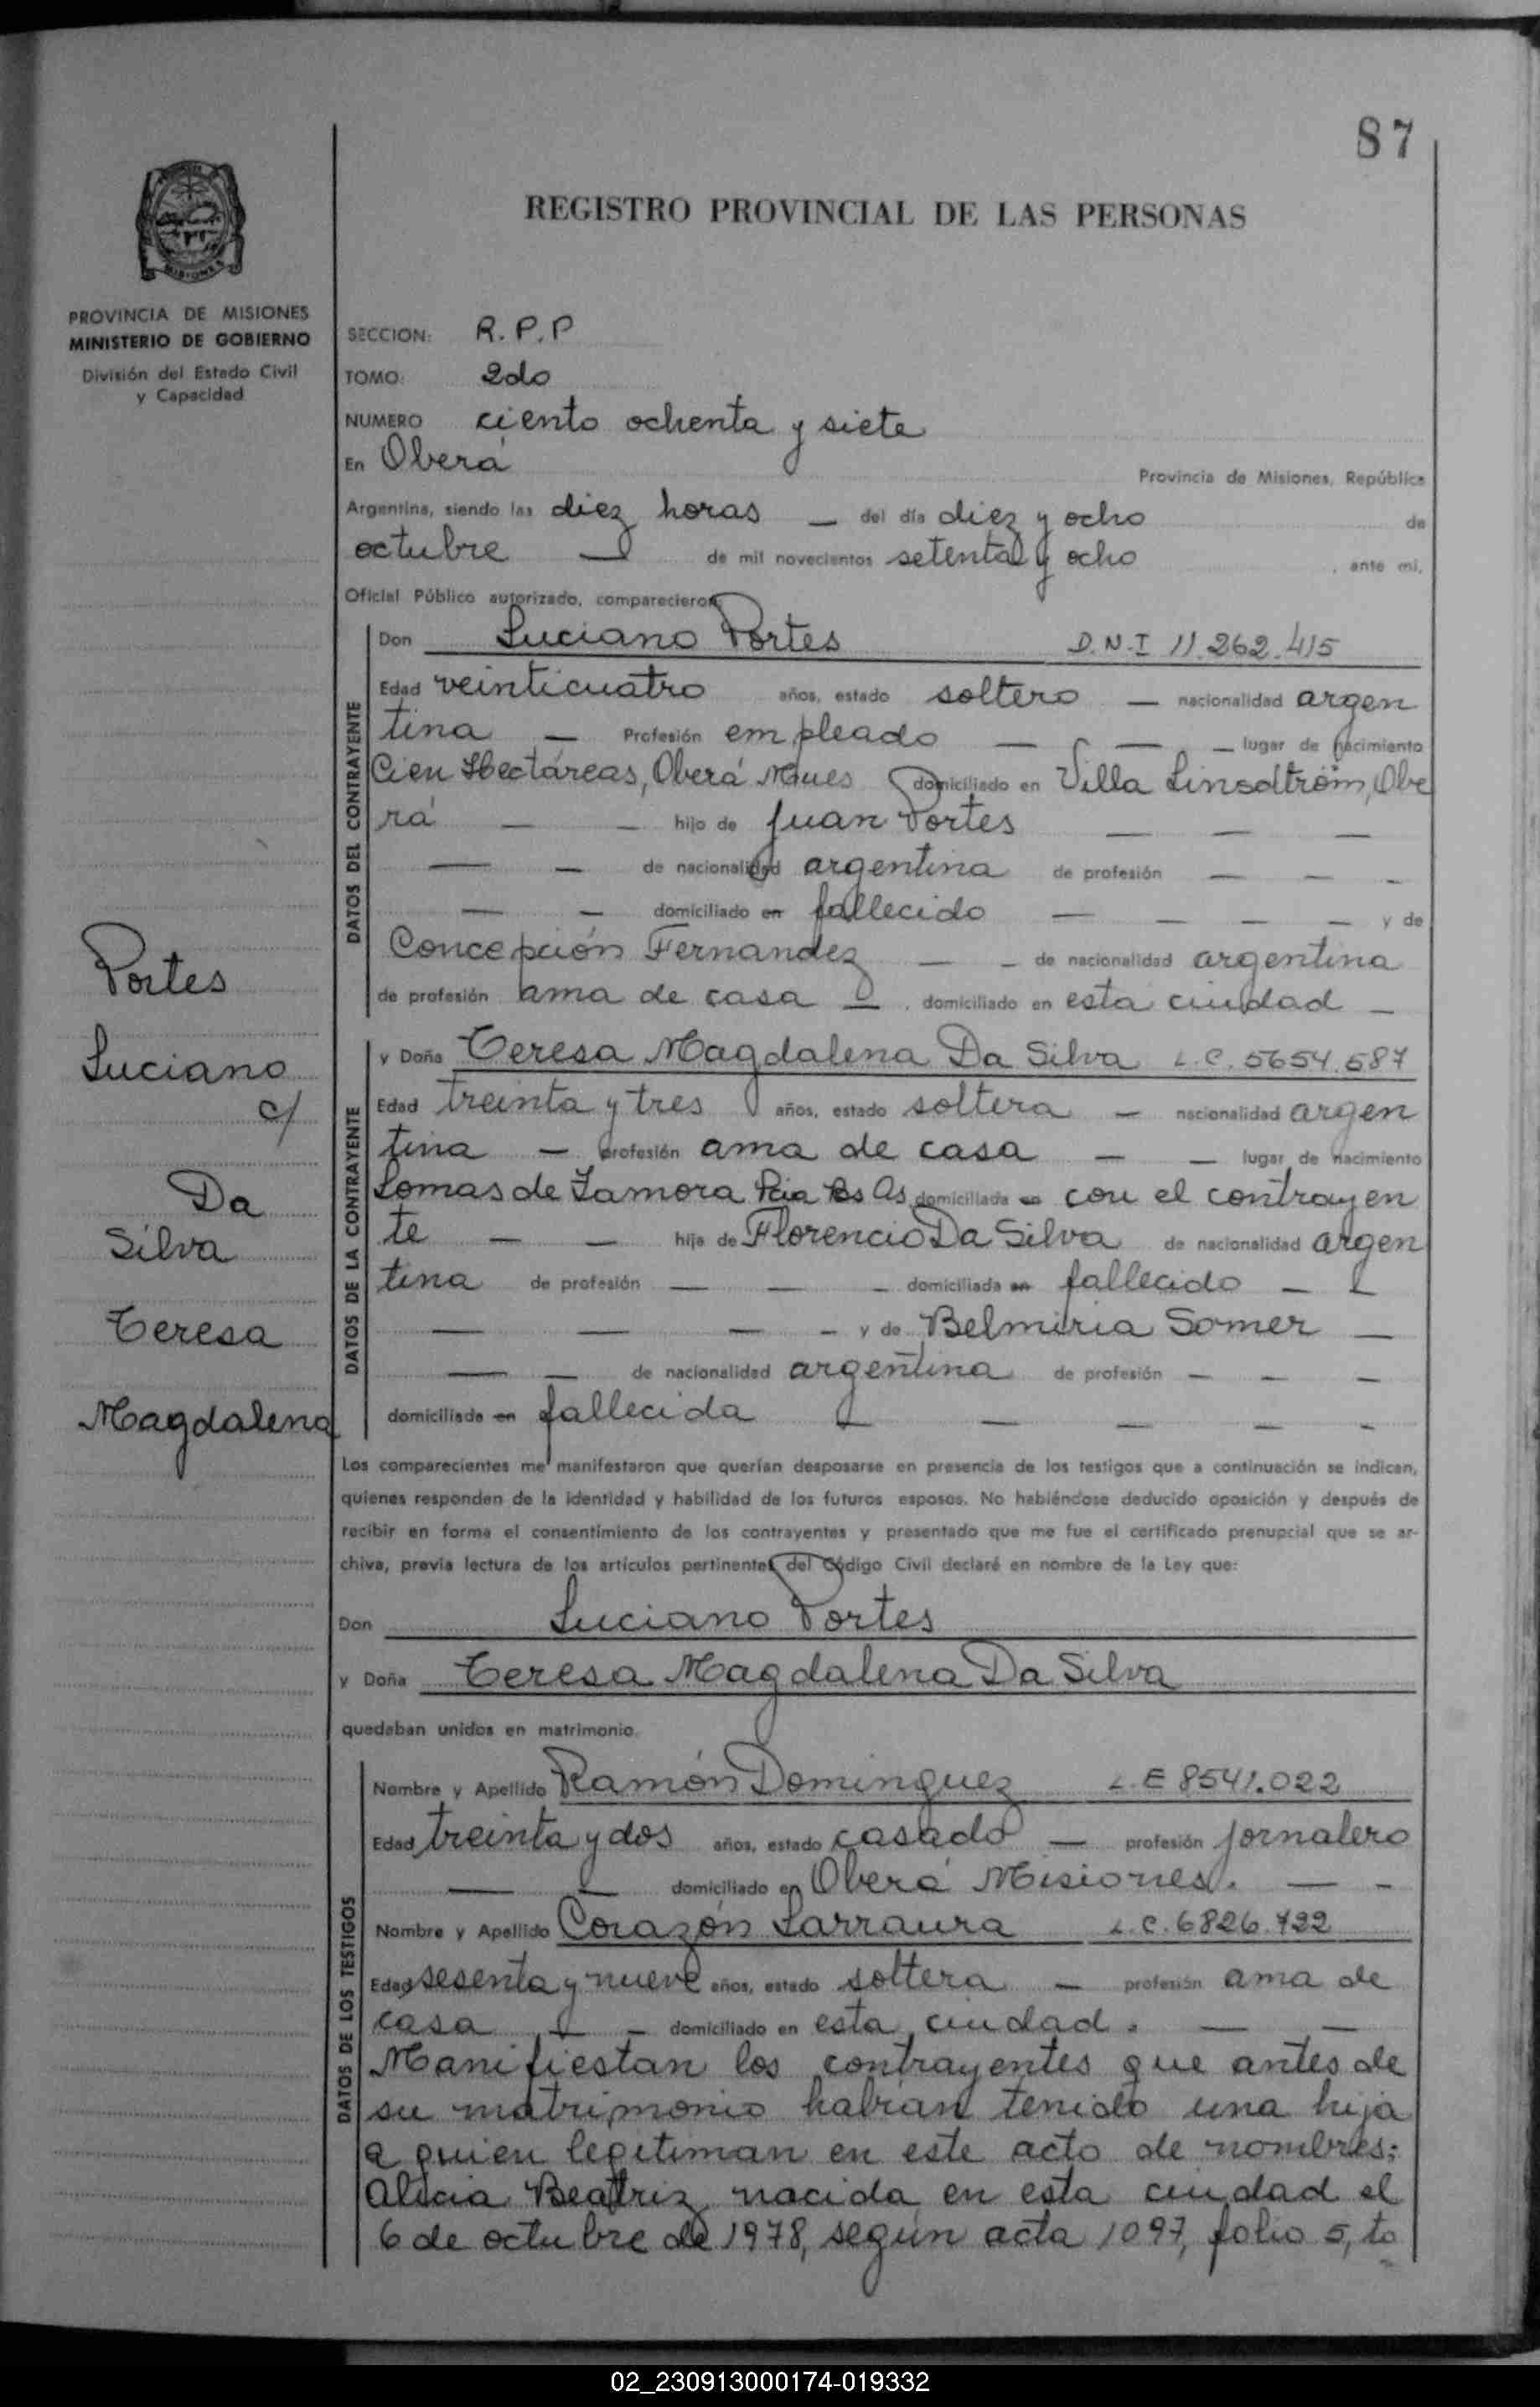 87
REGISTRO PROVINCIAL DE LAS PERSONAS
MISIONES
PROVINCIA DE MISIONES
MINISTERIO DE GOBIERNO
División del Estado Civil
y Capacidad
Portes
Luciano
c/
Da
Silva
Teresa
Magdalena
SECCION: R.P.P
TOMO: 2do
NUMERO ciento ochenta y siete
En Oberá Provincia de Misiones, República
Argentina, siendo las diez horas — del día diez y ocho de
octubre — de mil novecientos setenta y ocho, ante mi,
Oficial Público autorizado, comparecieron:
DATOS DEL CONTRAYENTE
Don Luciano Portes D.N.I 11.262.415
Edad veinticuatro años, estado soltero — nacionalidad argen
tina — Profesión empleado — — — lugar de nacimiento
Cien Hectáreas, Oberá Mnes domiciliado en Villa Linsdtröm, Obe
rá — — hijo de Juan Portes — — —
— — de nacionalidad argentina de profesión — — -
— — domiciliado en fallecido — — — — y de
Concepción Fernandez — — de nacionalidad argentina
de profesión ama de casa — . domiciliado en esta ciudad —
DATOS DE LA CONTRAYENTE
y Doña Teresa Magdalena Da Silva L.C. 5654.587
Edad treinta y tres años, estado soltera — nacionalidad argen
tina — profesión ama de casa — — lugar de nacimiento
Lomas de Zamora Pcia Bs As domiciliada en con el contrayen
te — — hija de Florencio Da Silva de nacionalidad argen
tina de profesión — — — domiciliada en fallecido — —
— — — — y de Belmiria Somer —
— — de nacionalidad argentina de profesión — — —
domiciliada en fallecida — — — — -
Los comparecientes me manifestaron que querían desposarse en presencia de los testigos que a continuación se indican,
quienes responden de la identidad y habilidad de los futuros esposos. No habiéndose deducido oposición y después de
recibir en forma el consentimiento de los contrayentes y presentado que me fue el certificado prenupcial que se ar-
chiva, previa lectura de los artículos pertinentes del Código Civil declaré en nombre de la Ley que:
Don Luciano Portes
y Doña Teresa Magdalena Da Silva
quedaban unidos en matrimonio.
DATOS DE LOS TESTIGOS
Nombre y Apellido Ramón Dominguez L.E 8541.022
Edad treinta y dos años, estado casado — profesión jornalero
— — domiciliado en Oberá Misiones. — -
Nombre y Apellido Corazón Larraura L.C. 6826.722
Edad sesenta y nueve años, estado soltera — profesión ama de
casa — — domiciliado en esta ciudad. — —
Manifiestan los contrayentes que antes de
su matrimonio habían tenido una hija
a quien legitiman en este acto de nombres:
Alicia Beatriz nacida en esta ciudad el
6 de octubre de 1978, según acta 1097, folio 5, to
02_230913000174-019332